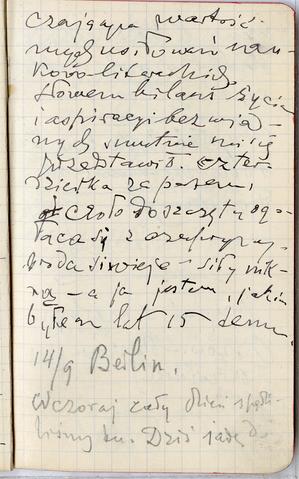 czająca wartość
mych usiłowań nau-
kowo-literackich,
słowem bilans życia
i aspiracyi bez mia-
nych smutnie mi się
przedstawił. Czter-
dziestka za pasem,
czoło doszczętu ogo-
łaca się z czupryny,
broda siwieje – siły nik-
ną – a ja jestem, jakim
byłem lat 15 temu.
14/9 Berlin.
Wczoraj cały dzień spędzi-
liśmy tu. Dziś jadę do